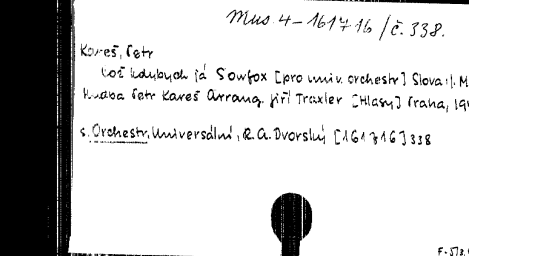 Mus. 4-161716/č. 338.
Kareš, Petr
Což kdybych já Slowfox [pro univ. orchestr] Slova: J. M
Hudba Petr Kareš Arrang. Jiří Traxler [Hlasy] Praha, 19
s. Orchestr, Universální, R.A. Dvorský [161716] 338